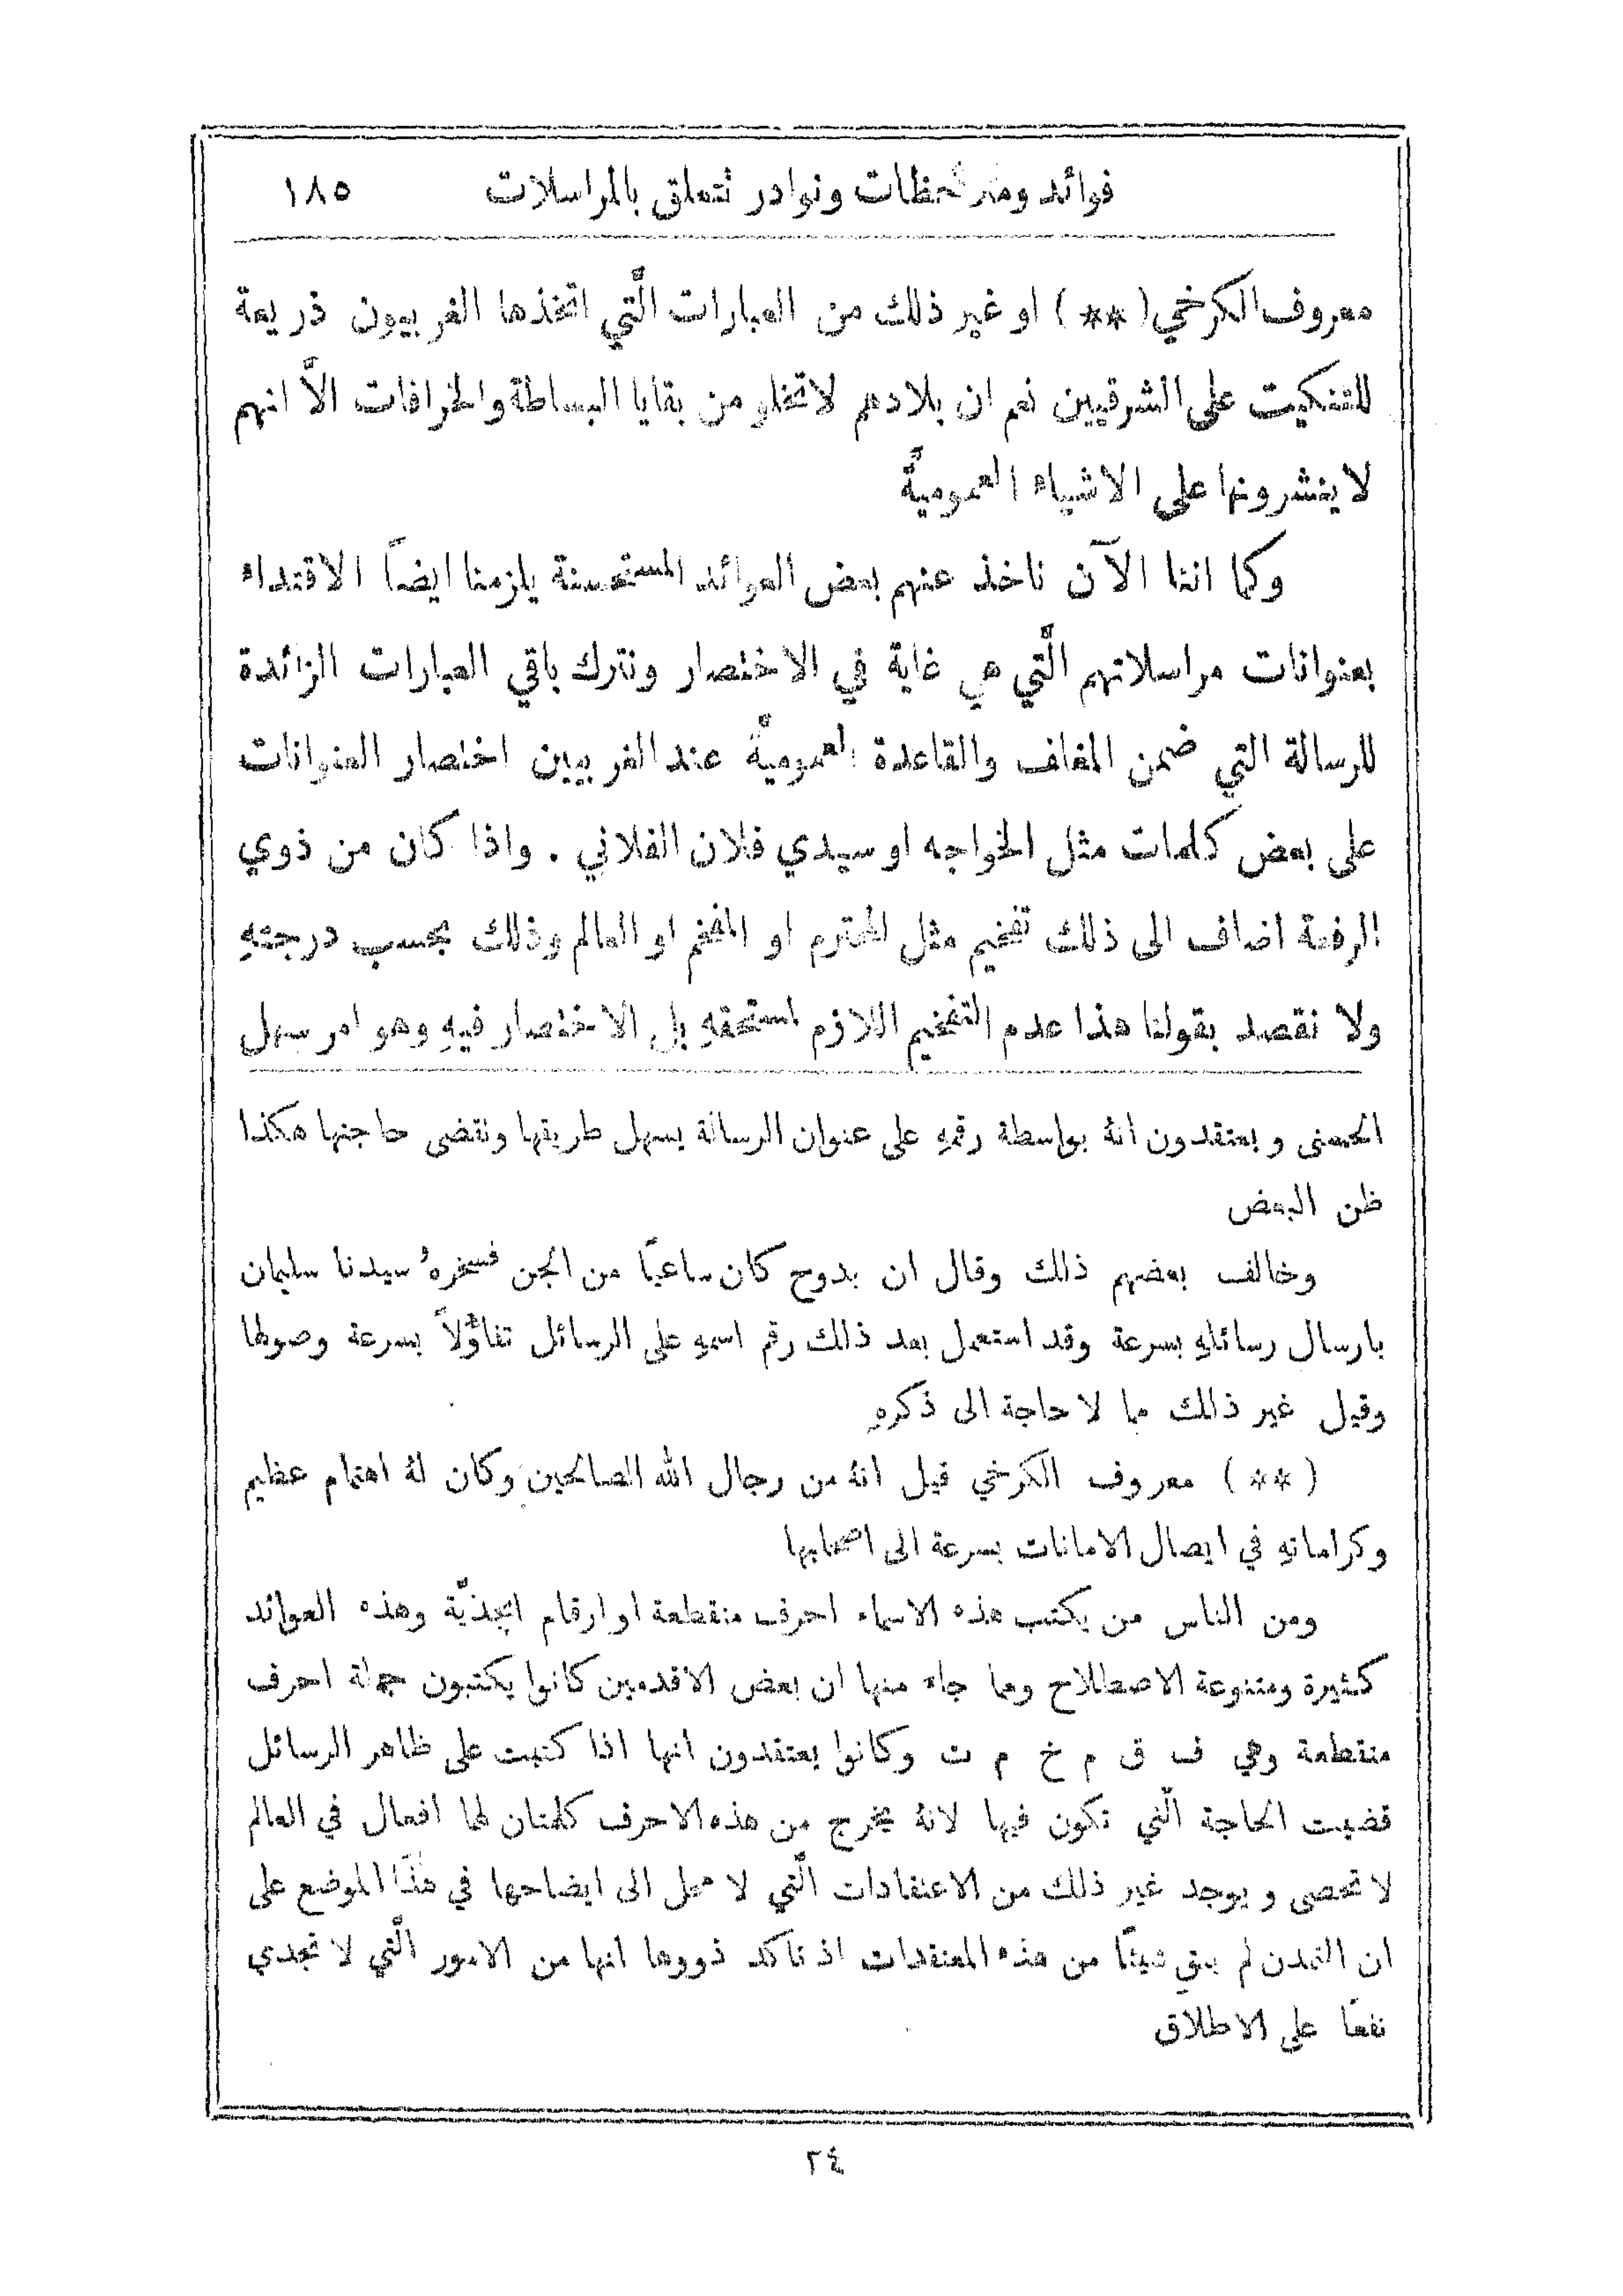 فوائد وملاحظات ونوادر تتعلق بالمراسلات ١٨٥
معروف الكرخي (**) او غير ذلك من العبارات الَّتي اتخذها الغربيون ذريعة
للتنكيت على الشرقيين نعم ان بلادهم لا تخلو من بقايا البساطة والخرافات الاَّ انهم
لا ينشرونها على الاشياء العموميَّة
وكما اننا الآن ناخذ عنهم بعض العوائد المستحسنة يلزمنا ايضاً الاقتداء
بعنوانات مراسلاتهم الَّتي هي غاية في الاختصار ونترك باقي العبارات الزائدة
للرسالة التي ضمن المغلف والقاعدة العموميَّة عند الغربيين اختصار العنوانات
على بعض كلمات مثل الخواجه او سيدي فلان الفلاني . واذا كان من ذوي
الرفعة اضاف الى ذلك تفخيم مثل المحترم او المفخم او العالم وذلك بحسب درجتهِ
ولا نقصد بقولنا هذا عدم التفخيم اللازم لمستحقهِ بل الاختصار فيهِ وهو امر سهل
الحسنى ويعتقدون انهُ بواسطة رقمهِ على عنوان الرسالة يسهل طريقها وتقضى حاجتها هكذا
ظن البعض
وخالف بعضهم ذلك وقال ان بدوح كان ساعيًا من الجن فسخرهُ سيدنا سليمان
بارسال رسائلهِ بسرعة وقد استعمل بعد ذلك رقم اسمهِ على الرسائل تفاؤُلاً بسرعة وصولها
وقيل غير ذلك مما لا حاجة الى ذكرهِ
(**) معروف الكرخي قيل انهُ من رجال الله الصالحين وكان لهُ اهتمام عظيم
وكراماتهِ في ايصال الامانات بسرعة الى اصحابها
ومن الناس من يكتب هذه الاسماء احرف منقطعة او ارقام ابجديَّة وهذه العوائد
كثيرة ومتنوعة الاصطلاح ومما جاء منها ان بعض الاقدمين كانوا يكتبون جملة احرف
منقطعة وهي ف ق م خ م ت وكانوا يعتقدون انها اذا كتبت على ظاهر الرسائل
قضيت الحاجة الَّتي تكون فيها لانهُ يخرج من هذه الاحرف كلمتان لهما افعال في العالم
لا تحصى ويوجد غير ذلك من الاعتقادات الَّتي لا محل الى ايضاحها في هذا الموضع على
ان التمدن لم يبقِ شيئًا من هذه المعتقدات اذ تاكد ذووها انها من الامور الَّتي لا تجدي
نفعًا على الاطلاق
٢٤